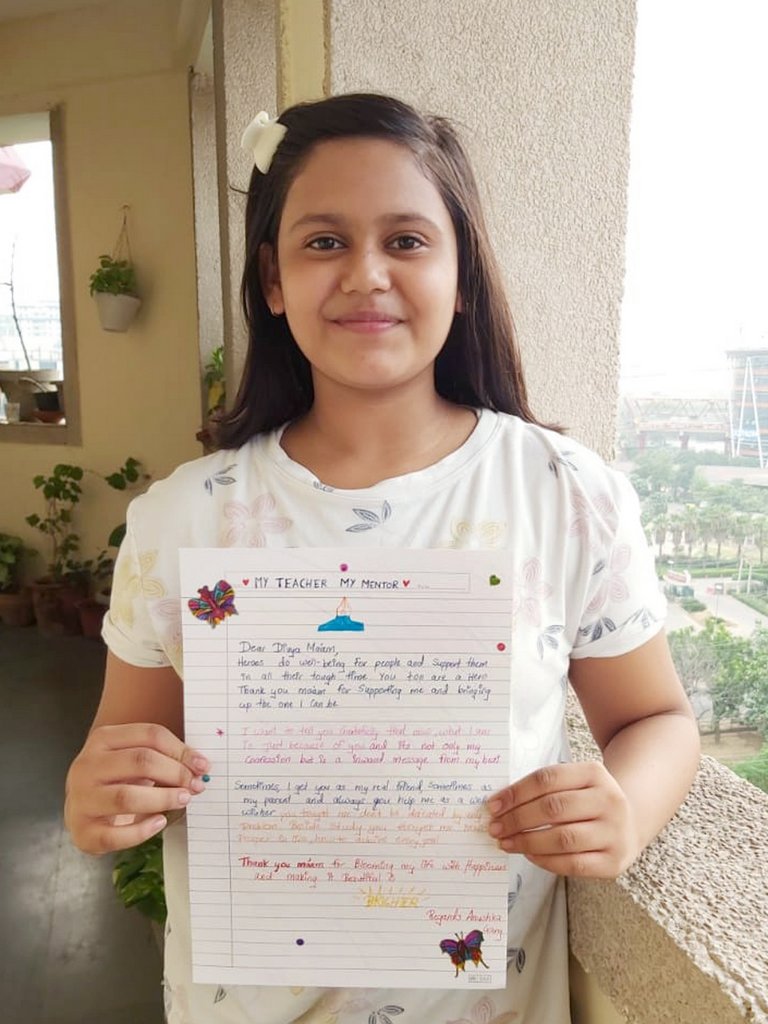 MY TEACHER MY MENTOR
Dear Divya Ma'am,
Heroes do well-being for people and support them
in all their tough time. You too are a Hero
Thank you maam for Supporting me and bringing
up the one I can be
I want to tell you that now, what I am
is Just because of you and its not only my
but is a inward message from my heart
Sometimes, I get you as my real friend Sometimes as
my parent and always you help me as a well
wisher you taught me dont be
Problem study you me
Thank you maam for Blooming my life with Happiness
and making it Beautiful
Regards Anushka
Garg